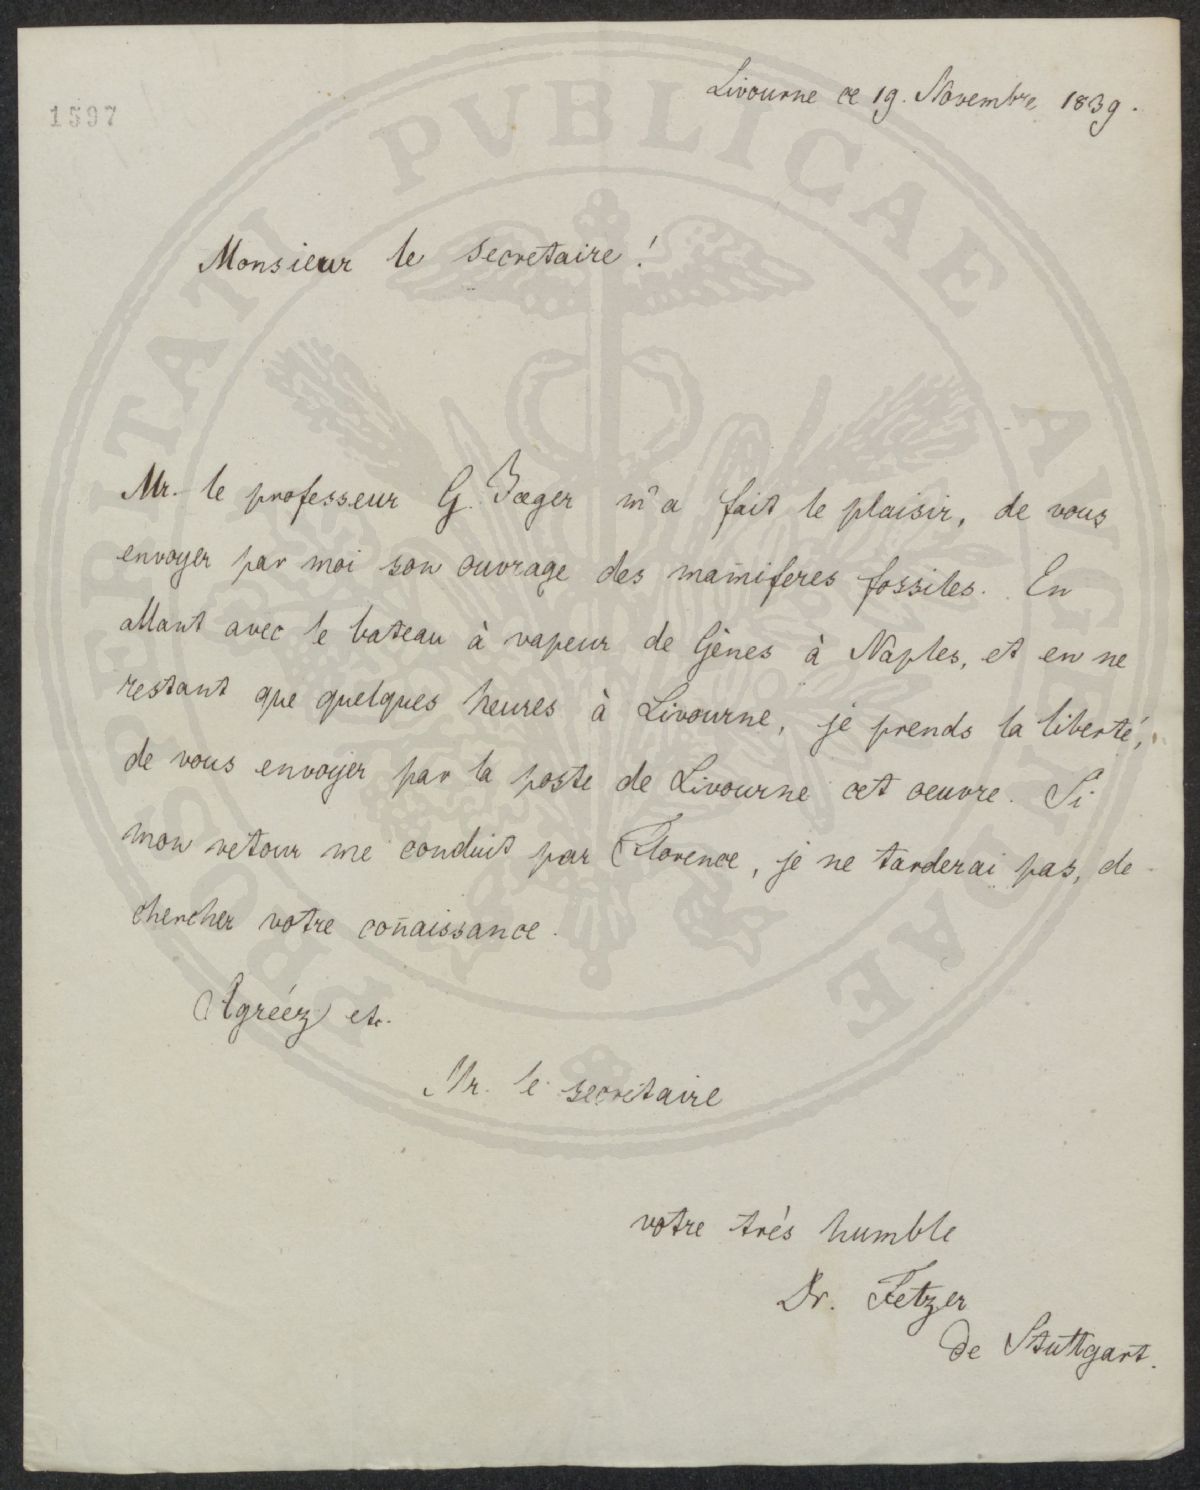 1597
Livourne ce 19. Novembre 1839.
Monsieur le secretaire!
Mr. le professeur G. Jæger m'a fait le plaisir, de vous
envoyer par moi son ouvrage des mam̄iferes fossiles. En
allant avec le bateau à vapeur de Gènes à Naples, et en ne
restant que quelques heures à Livourne, je prends la liberté,
de vous envoyer par la poste de Livourne cet oeuvre. Si
mon retour me conduit par Florence, je ne tarderai pas, de
chercher votre con̄aissance.
Agréez etc.
Mr. le secretaire
votre très humble
Dr. Fetzer
de Stuttgart.
PROSPERITATI PVBLICAE AVGENDAE